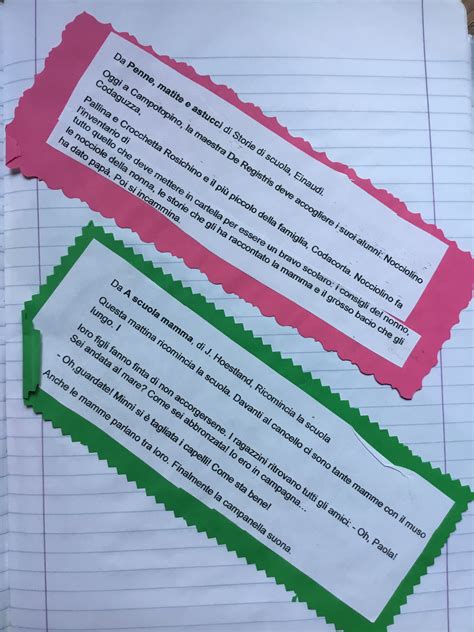 Da Penne, matite e astucci di Storie di scuola, Einaudi.
Oggi a Campotopino, la maestra De Registris deve accogliere i suoi alunni: Nocciolino
Codaguzza
Pallina e Crocchetta Rosichino e il più piccolo della famiglia, Codacorta. Nocciolino fa
l'inventario di
tutto quello che deve mettere in cartella per essere un bravo scolaro: i consigli del nonno,
le nocciole della nonna, le storie che gli ha raccontato la mamma e il grosso bacio che gli
ha dato papà. Poi si incammina.
Da A scuola mamma, di J. Hoestland, Ricomincia la scuola
Questa mattina ricomincia la scuola. Davanti al cancello ci sono tante mamme con il muso
lungo. I
loro figli fanno finta di non accorgersene. I ragazzini ritrovano tutti gli amici. - Oh, Paola!
Sei andata al mare? Come sei abbronzata! Io ero in campagna...
- Oh,guardate! Minni si è tagliata i capelli! Come sta bene!
Anche le mamme parlano tra loro. Finalmente la campanella suona.